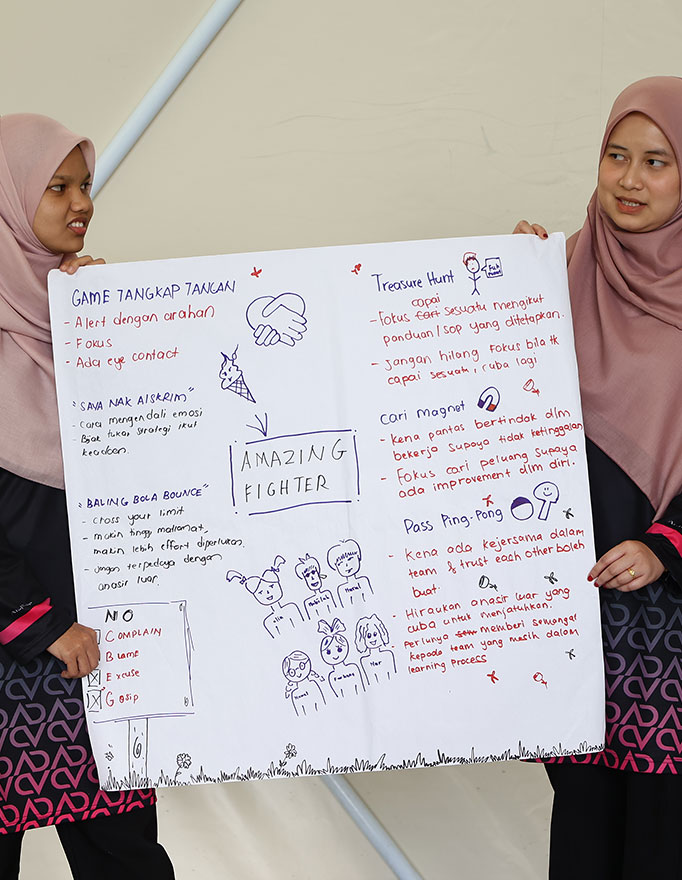 GAME TANGKAP TANGAN
- Alert dengan arahan
- Fokus
- Ada eye contact
"SAYA NAK AISKRIM"
- Cara mengendali emosi
- Bijak tukar strategi ikut
keadaan.
"BALING BOLA BOUNCE"
- Cross your limit
- makin tinggi matlamat,
makin lebih effort diperlukan.
- Jangan terpedaya dengan
anasir luar.
NO
COMPLAIN
Blame
Excuse
Gosip
6
AMAZING
FIGHTER
Treasure Hunt
capai
- Fokus cari sesuatu mengikut
panduan/sop yang ditetapkan.
- Jangan hilang fokus bila tk
capai sesuatu, cuba lagi
Cari magnet
- Kena pantas bertindak dlm
bekerja supaya tidak ketinggalan
- Fokus cari peluang supaya
ada improvement dlm diri.
Pass Ping-Pong
- Kena ada kejersama dalam
team & trust each other boleh
buat.
- Hiraukan anasir luar yang
cuba untuk menjatuhkan.
Perlunya memberi semangat
kepada team yang masih dalam
learning process